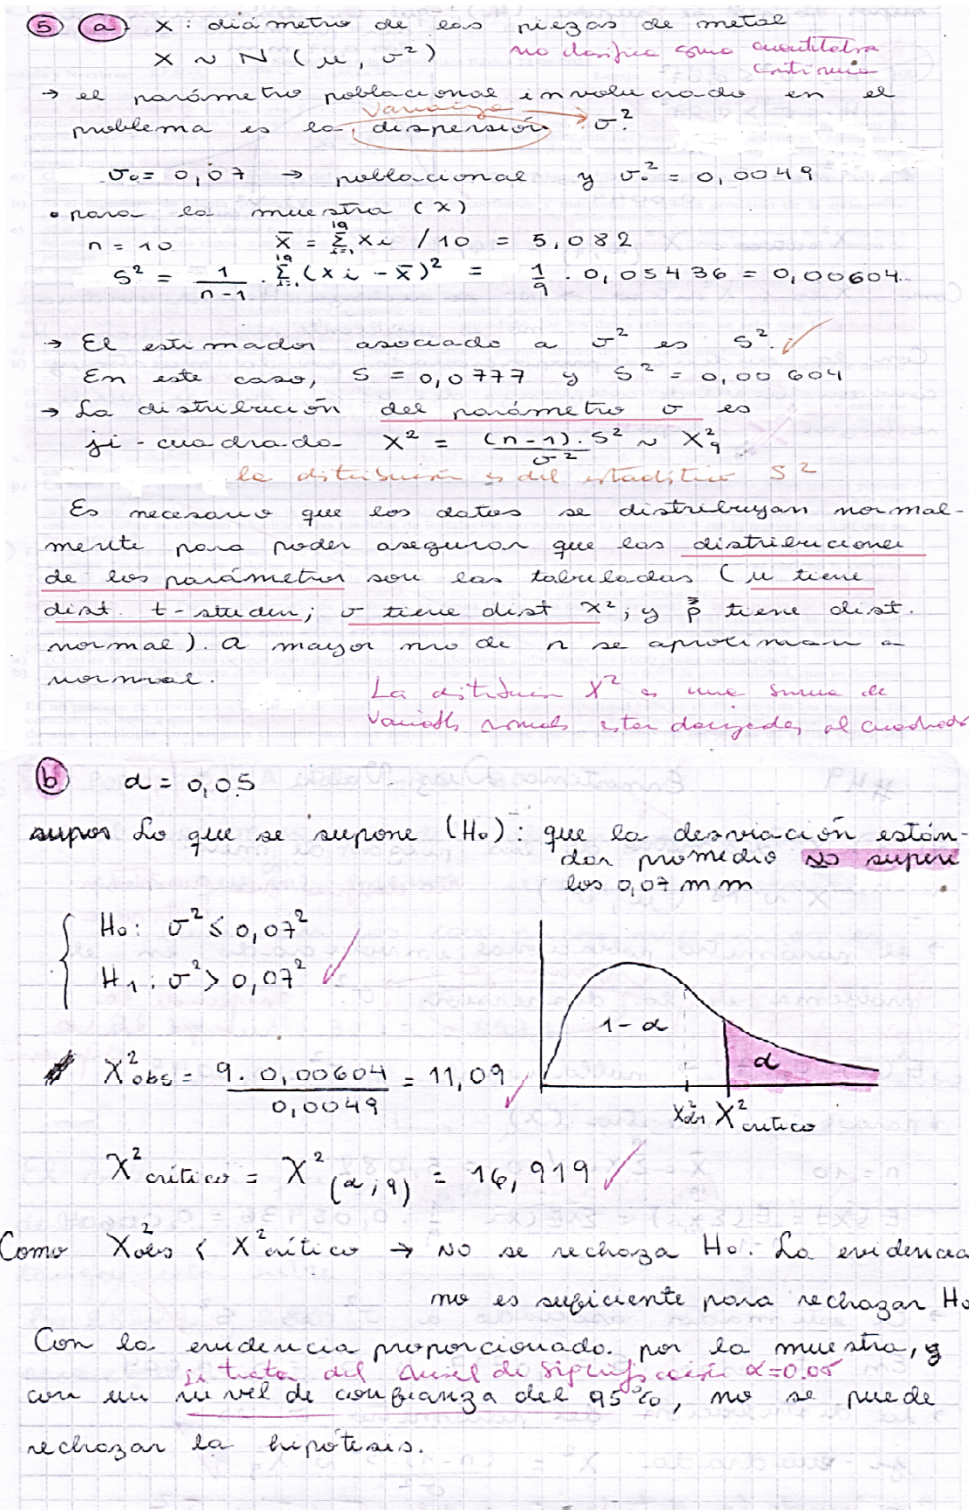 5 a) X: diámetro de las piezas de metal
X ~ N (μ, σ²) no clasifica como cuantitativa
continua
→ el parámetro poblacional involucrado en el
varianza
problema es la dispersión σ².
σ₀ = 0,07 → poblacional y σ₀² = 0,0049
• para la muestra (x)
n = 10 X̄ = Σ xi / 10 = 5,082
S² = 1/(n-1) . Σ (xi - x̄)² = 1/9 . 0,05436 = 0,00604
→ El estimador asociado a σ² es S². ✓
En este caso, S = 0,0777 y S² = 0,00604
→ La distribución del parámetro σ es
ji-cuadrado X² = (n-1).S²/σ² ~ X²₉
la distribución es del estadístico S²
Es necesario que los datos se distribuyan normal-
mente para poder asegurar que las distribuciones
de los parámetros son las tabuladas (μ tiene
dist. t-studen; σ tiene dist X²; y p̂ tiene dist.
normal). A mayor nro de n se aproximan a
normal.
La distribución X² es una suma de
variables normales estandarizadas al cuadrado
b α = 0,05
Lo que se supone (H₀): que la desviación están-
dar promedio no supere
los 0,07 mm
H₀: σ² ≤ 0,07²
H₁: σ² > 0,07² ✓
1-α
α
X²obs = 9 . 0,00604/0,0049 = 11,09 ✓
X²obs X²crítico
X²crítico = X²(α;9) = 16,919 ✓
Como X²obs < X²crítico → no se rechaza H₀. La evidencia
no es suficiente para rechazar H₀
Con la evidencia proporcionada por la muestra, y
se trata del nivel de significación α=0.05
con un nivel de confianza del 95%, no se puede
rechazar la hipótesis.